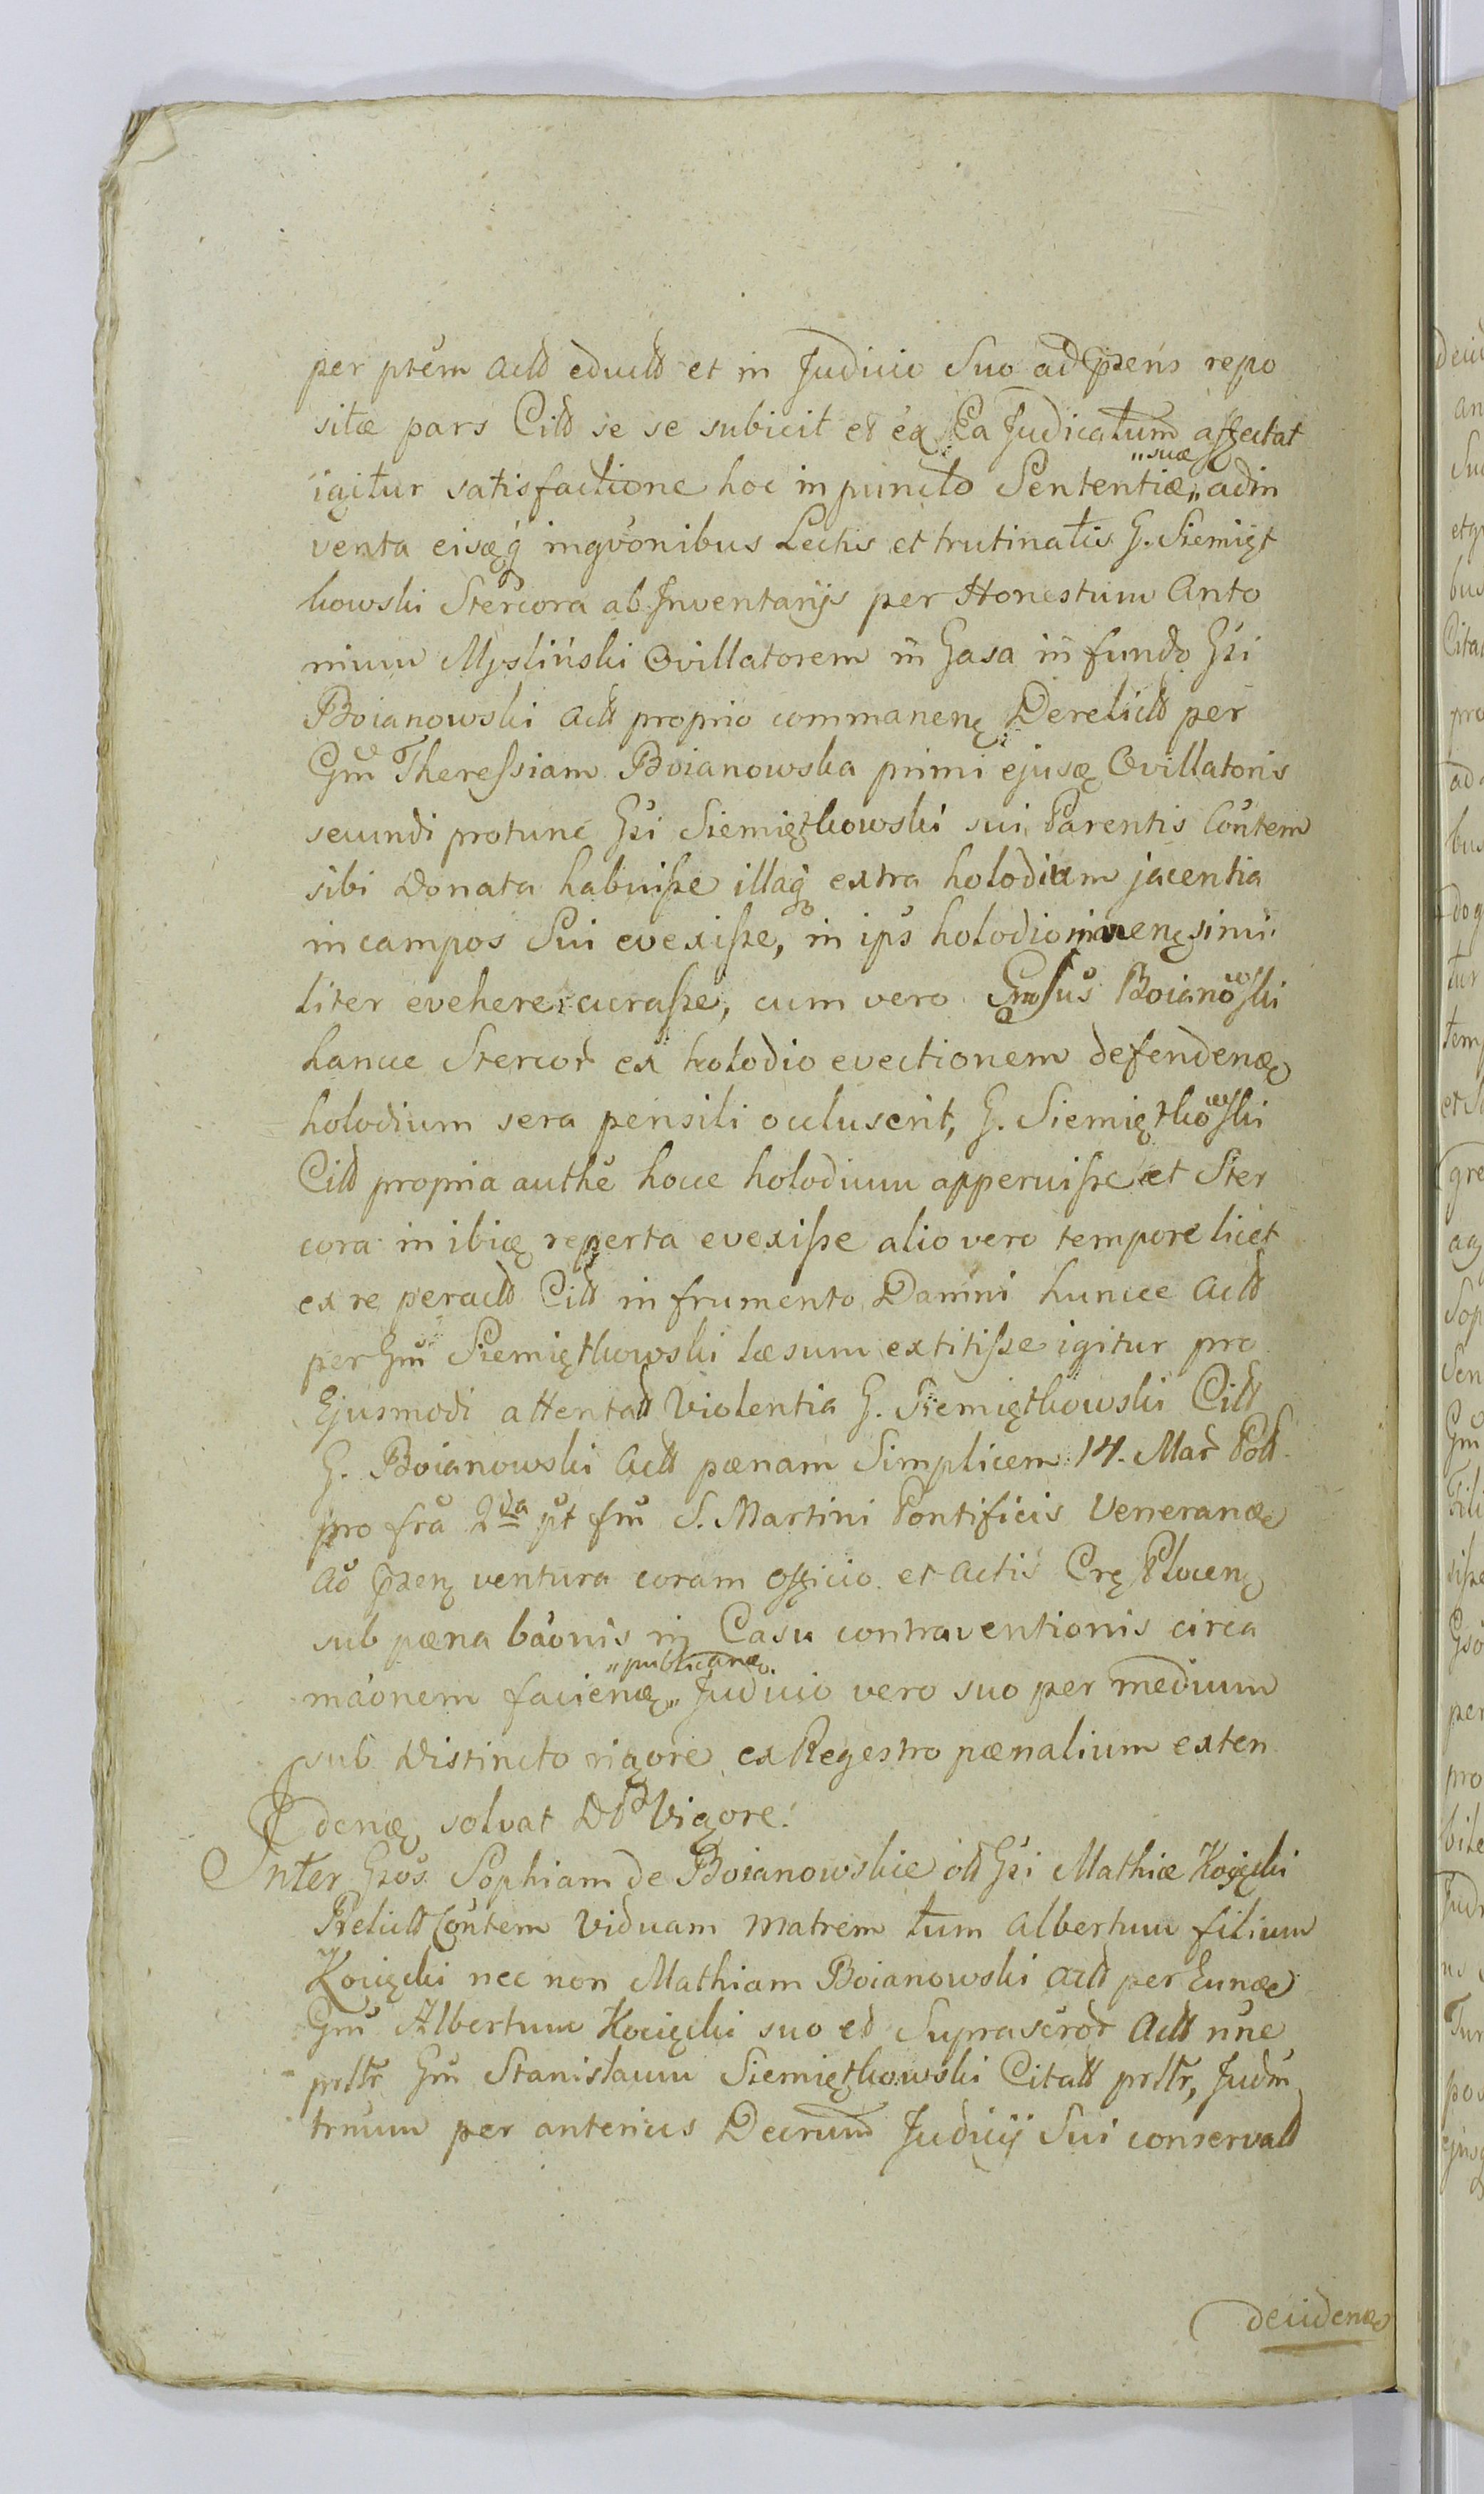 per ptem Actt eductt et in Judicio Suo ad ppens repo
sitæ pars Citt se se subicit et ex Ea Judicatum affectat
igitur satisfactione hoc in puncto Sententiæ „suæ„ adin
venta eisq3 inqvonibus Lectis et trutinatis G. Siemięt
kowski Stercora ab Inventarijs per Honestum Anto
nium Mysliński Ovillatorem in Gasa in fundo Gsi
Boianowski Actt proprio commanen Derelictt per
Gm Theressiam Boianowska primi ejusq Ovillatoris
secundi protunc Gsi Siemiętkowski sui Parentis Contem
sibi Donata habuisse illaq3 extra holodium jacentia
in campos Sui evexisse, in ips holodio inven simi
liter evehere curasse, cum vero Gnsus Boianowski
hancce Stercor ex holodio evectionem defendenæ
holodium sera pensili occluserit, G. Siemiętkowski
Citt propria authe hocce holodium apperuisse et Ster
cora in ibiq reperta evexisse alio vero tempore licet
ex re peractt Citt in frumento Damni huncce Actt
per Gm Siemiętkowski læsum extitisse igitur pro
Ejusmodi attentatt Violentia G. Siemiętkowski Citt
G. Boianowski Actt pænam Simplicem 14. Mar Poll
pro fra 2da pt fm S. Martini Pontificis Veneranæ
ad ppsen ventura coram officio et Actis Cr Plocen
sub pæna baonis in Casu contraventionis circa
maonem facienæ „publicanæ„ Judicio vero suo per medium
sub Distincto rigore ex Regestro pænalium exten
denæ solvat Dti Vigore.
Inter Gsos Sophiam de Boianowskie ott Gsi Mathiæ Kocięcki
Relictt Contem Viduam Matrem tum Albertum filium
Kocięcki nec non Mathiam Boianowski Actt per Eunæ
Gm Albertum Kocięcki suo et Suprascror Actt nne
prttr Gm Stanislaum Siemiętkowski Citatt prttr, Judm
trnum per anterius Decrum Judicij Sui conservatt
decidenæ